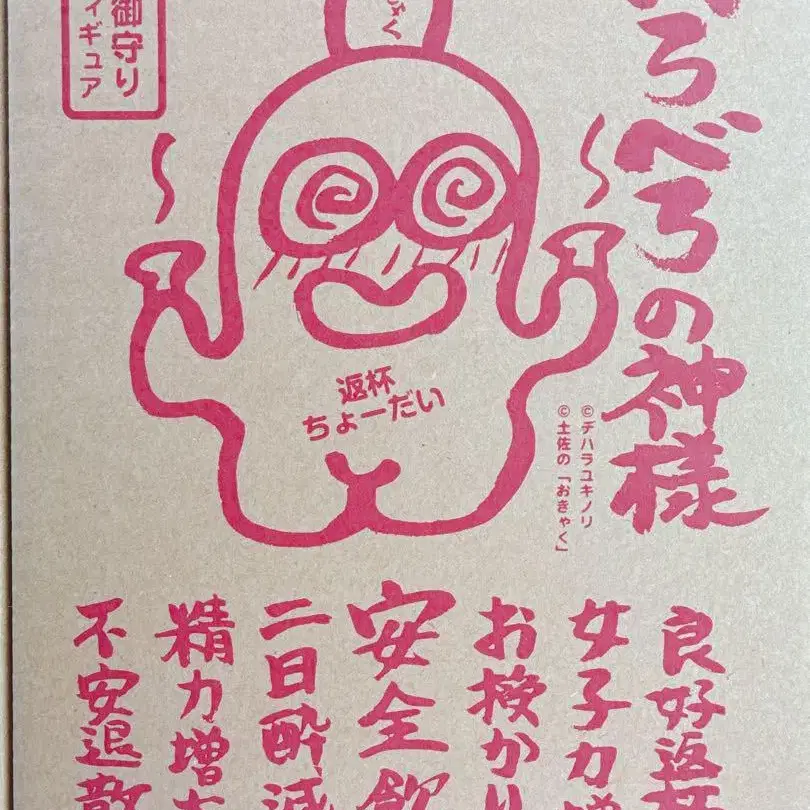 ろべろの神様
©デハラユキノリ
©土佐の「おきゃく」
ゃく
御守り
ィギュア
返杯
ちょーだい
良好返杯
女子力増
お授かり
安全飲
二日酔減
精力増
不安退散